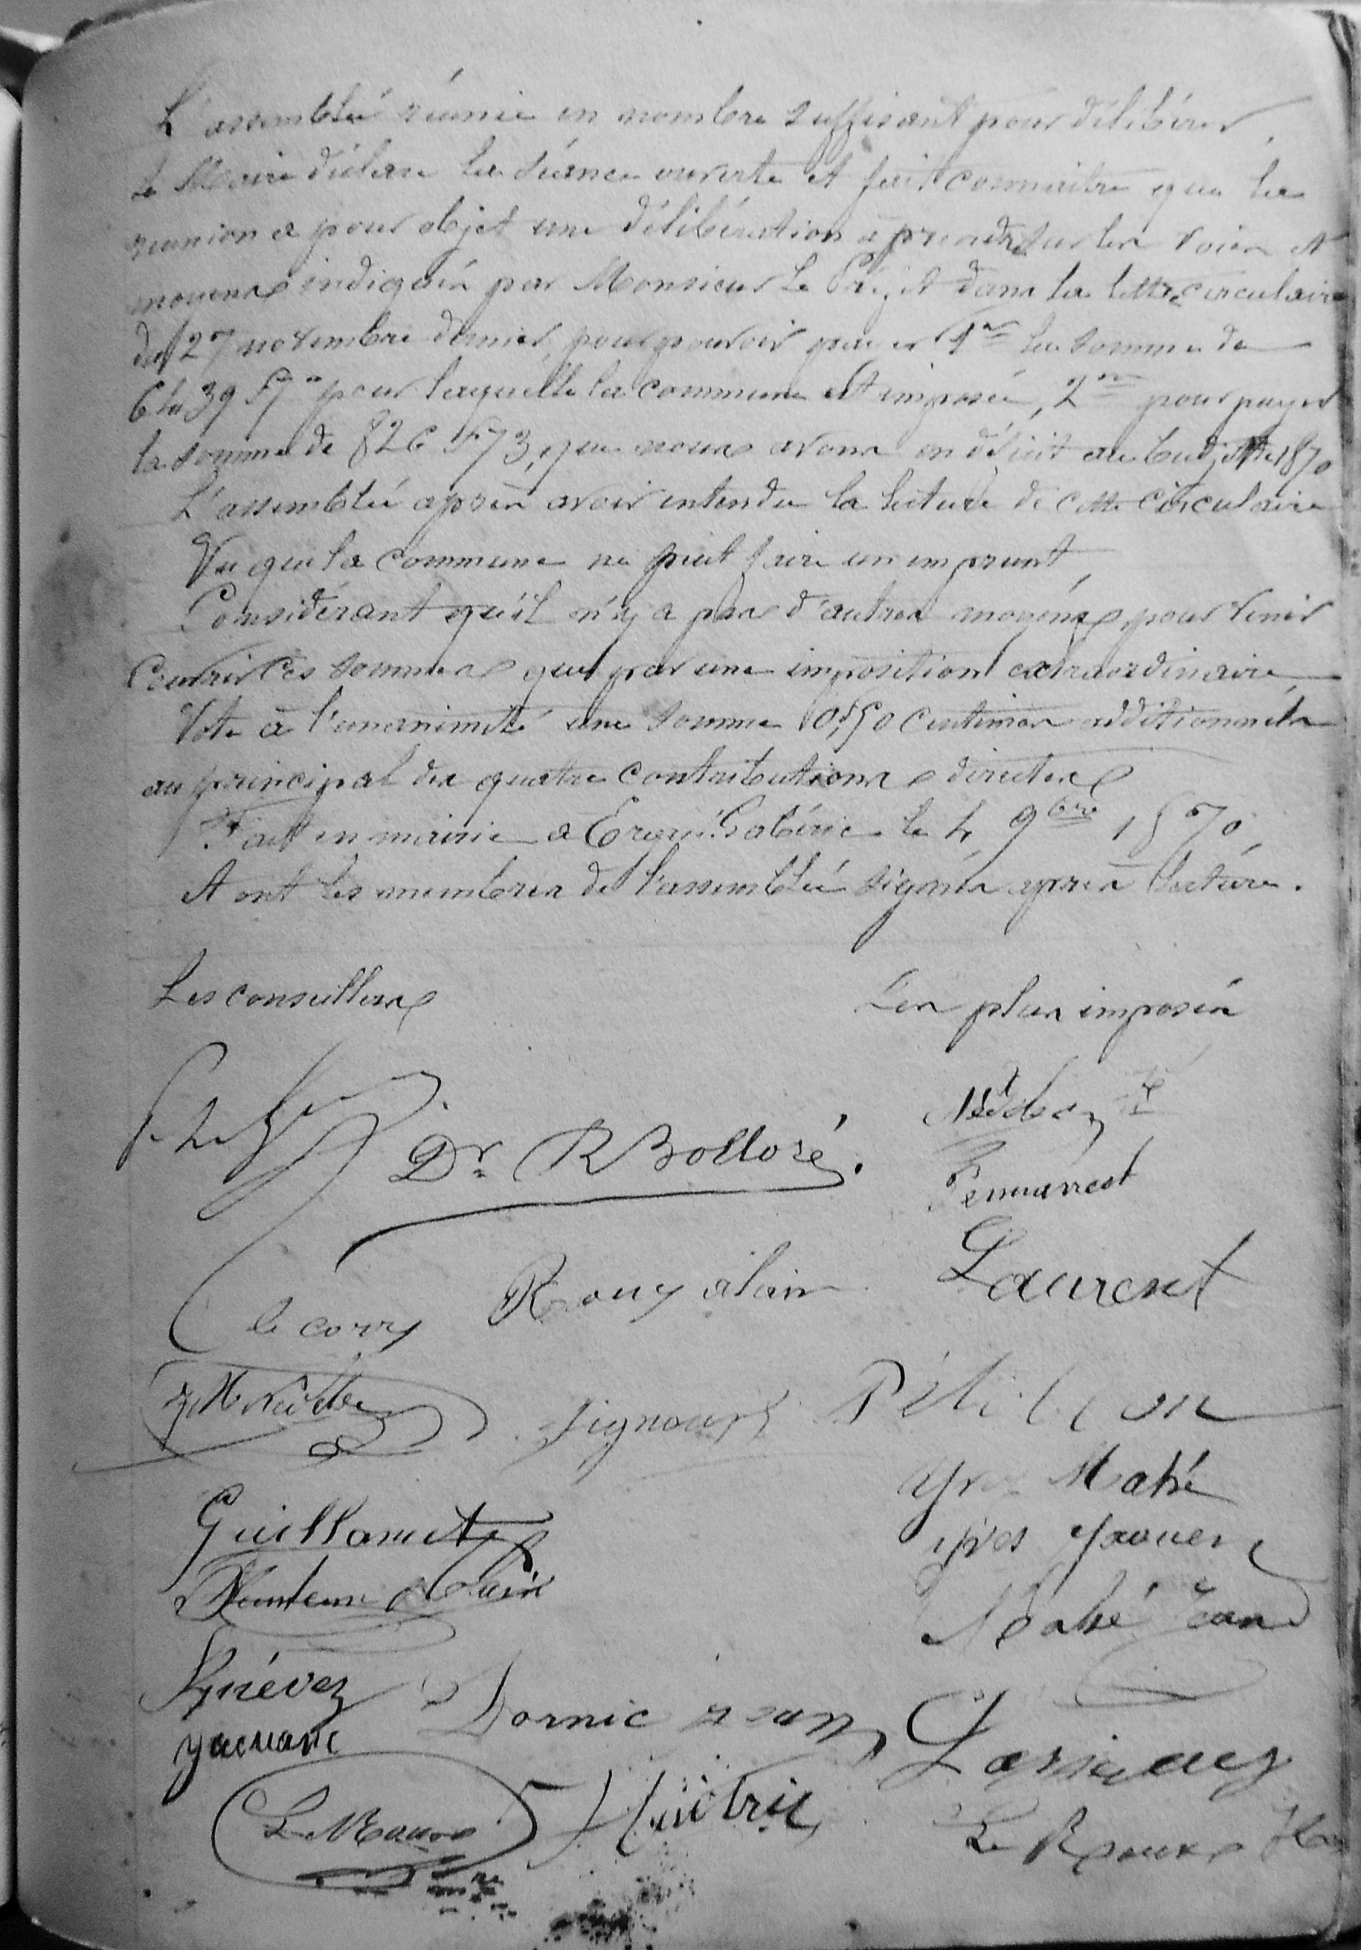 L'assemblée réunie en nombre suffisant pour délibérer,
le Maire déclare la séance ouverte et fait connaitre que la
réunion a pour objet une délibération à prendre sur les voies et
moyens indiqués par Monsieur le Préfet dans la lettre circulaire
du 27 novembre dernier, pour pouvoir payer 1º la somme de
pour laquelle la commune est imposée, 2º pour payer
la somme de 826 f 73, que nous avons en déficit au budjet de 1870
L'assemblée après avoir entendu la lecture de cette circulaire
Vu que la commune ne peut faire un emprunt,
Considérant qu'il n'y a pas d'autres moyens pour venir
couvrir ces sommes que par une imposition extraordinaire,
Vote à l'unanimité une somme 0,f50 centimes additionnels
au principal des quatre contributions directes
Fait en mairie à Ergué-Gabéric le 4 9bre 1870
et ont les membres de l'assemblée signés après lecture.
Les conseillers Les plus imposés
Dr R Bolloré.
Pennanrest
Laurent
le corre Rouy alain
Signour Pétillon
Guillamet Yves Mahé
Alain Yves Yaouen
Mahé Jean
Kgrévez Dornic Jean
yaouanc
Huitric
Le Roux